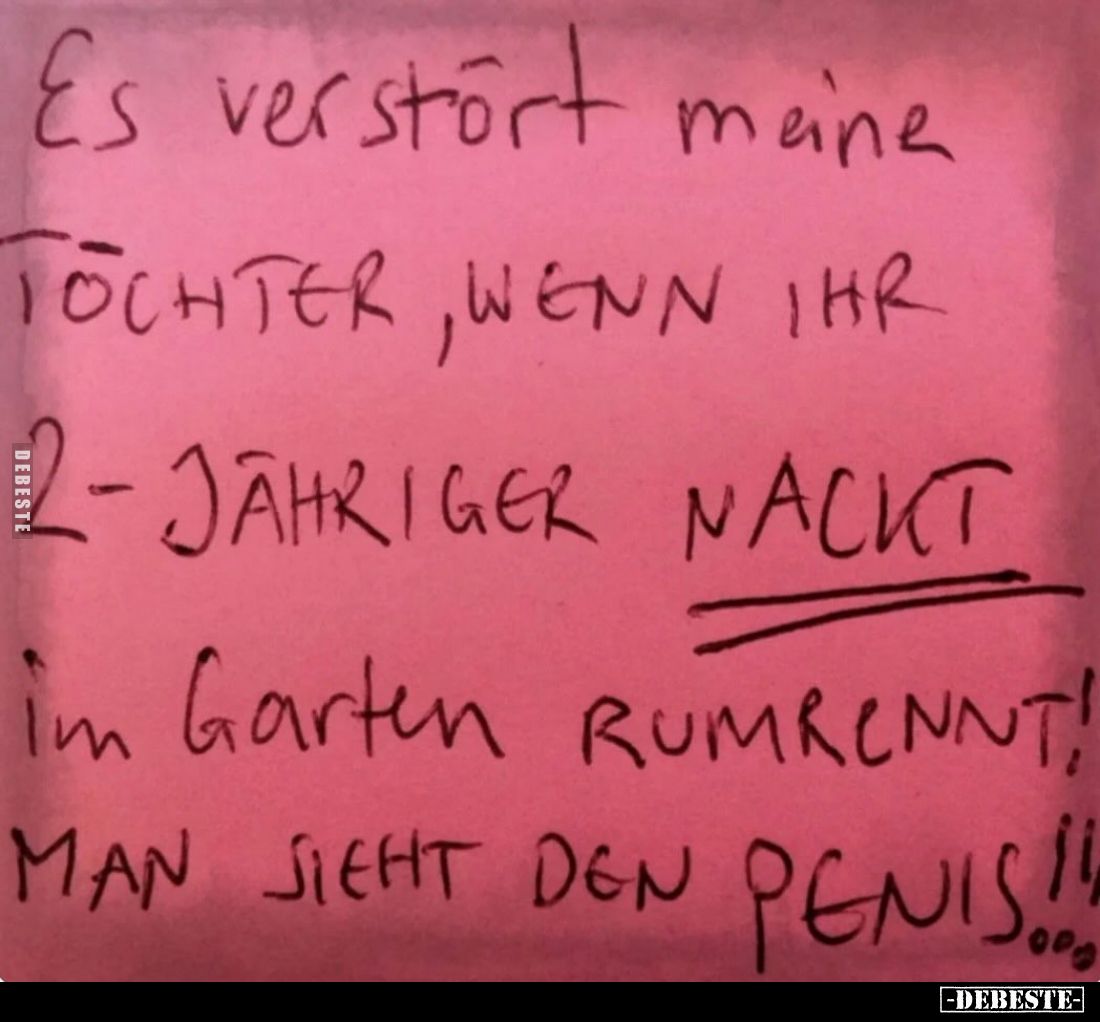 Es verstört meine
TÖCHTER, WENN IHR
2-JÄHRIGER NACKT
im Garten RUMRENNT!
MAN SIEHT DEN PENIS!!!
DEBESTE
-DEBESTE-